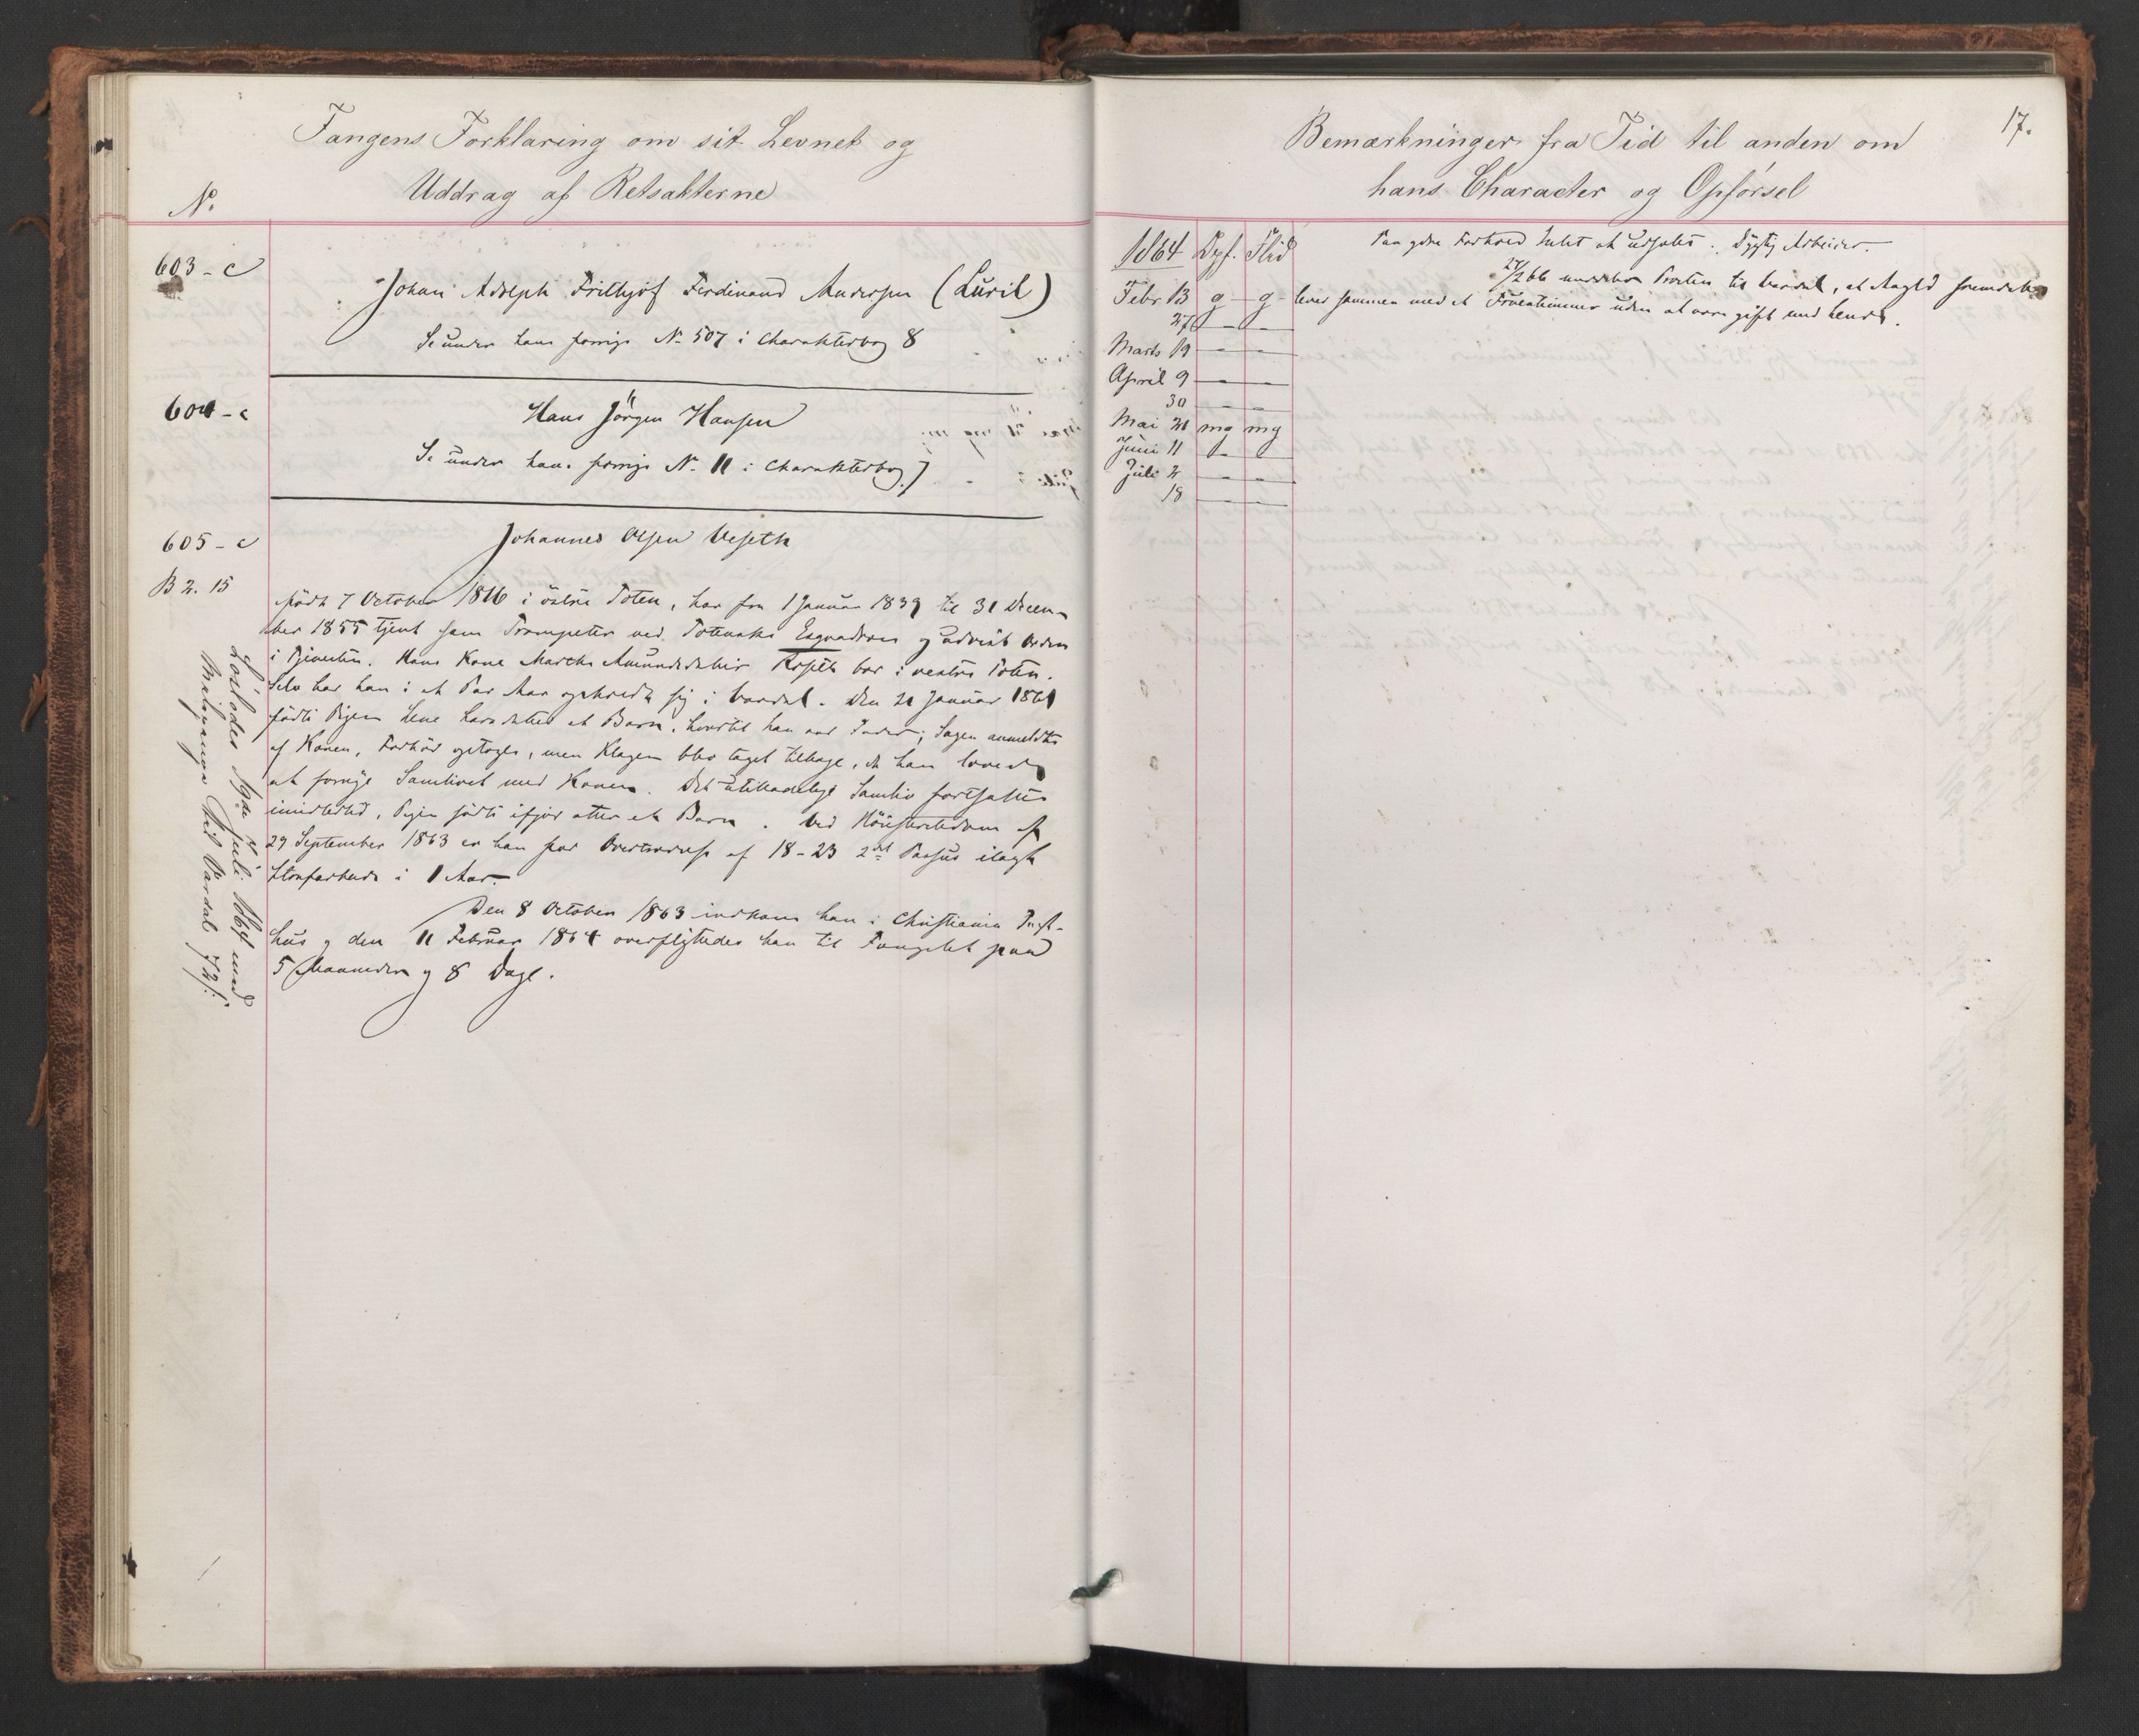 Fangens Forklaring om sit Levnet og
Uddrag af Retsakterne
No.
603-c
Johan Adolph Frithjof Ferdinand Andersen (Luril)
Se under hans forrige No 507 i Charakterbog 8
604-c
Hans Jörgen Hansen
Se under hans forrige No. 11 i Charakterbog 7
605-c
Johannes Olsen Veseth
B 2. 15
födt 7 October 1816 i östre Toten, har fra 1 Januar 1839 til 31 Decem-
ber 1855 tjent som Trompeter ved Totenske Esquadron og udvist Orden
i Tjenesten. Hans Kone Marthe Amundsdatter bor i vestre Toten.
Selv har han i et Par Aar opholdt sig i Vardal. Den 21 Januar 1861
födte Pigen Lene Larsdatter et Barn, hvortil han var Fader; Sagen anmeldtes
af Konen, Forhör optoges, men Klagen blev taget tilbage, da han lovede
at fornye Samlivet med Konen. Det utilladelige Samliv fortsattes
imidlertid, Pigen födte ifjor atter et Barn. Ved Höiesteretsdom af
29 September 1863 er han for Overtrædelse af 18-23 2det Passus ilagt
Strafarbeide i 1 Aar.
Den 8 October 1863 indkom han i Christiania Tugt-
hus og den 11 Februar 1864 overflyttedes han til Fængslet paa
5 Maaneder og 8 Dage.
Löslodes 19de Juli 1864 med
Reisepenge til Vardal
17.
Bemærkninger fra Tid til anden om
hans Character og Opförsel
1864 Opf. Flid
Febr 13 g g
27 - -
Marts 19 - -
April 9 - -
30 - -
Mai 21 mg mg
Juni 11 - -
Juli 2 - -
18 - -
Paa hans Forhold Intet at udsætte. Dygtig Arbeider.
27/2 66 meddeler Præsten til Vardal, at Angld fremdeles
lever sammen med et Fruentimmer uden at være gift med hende.